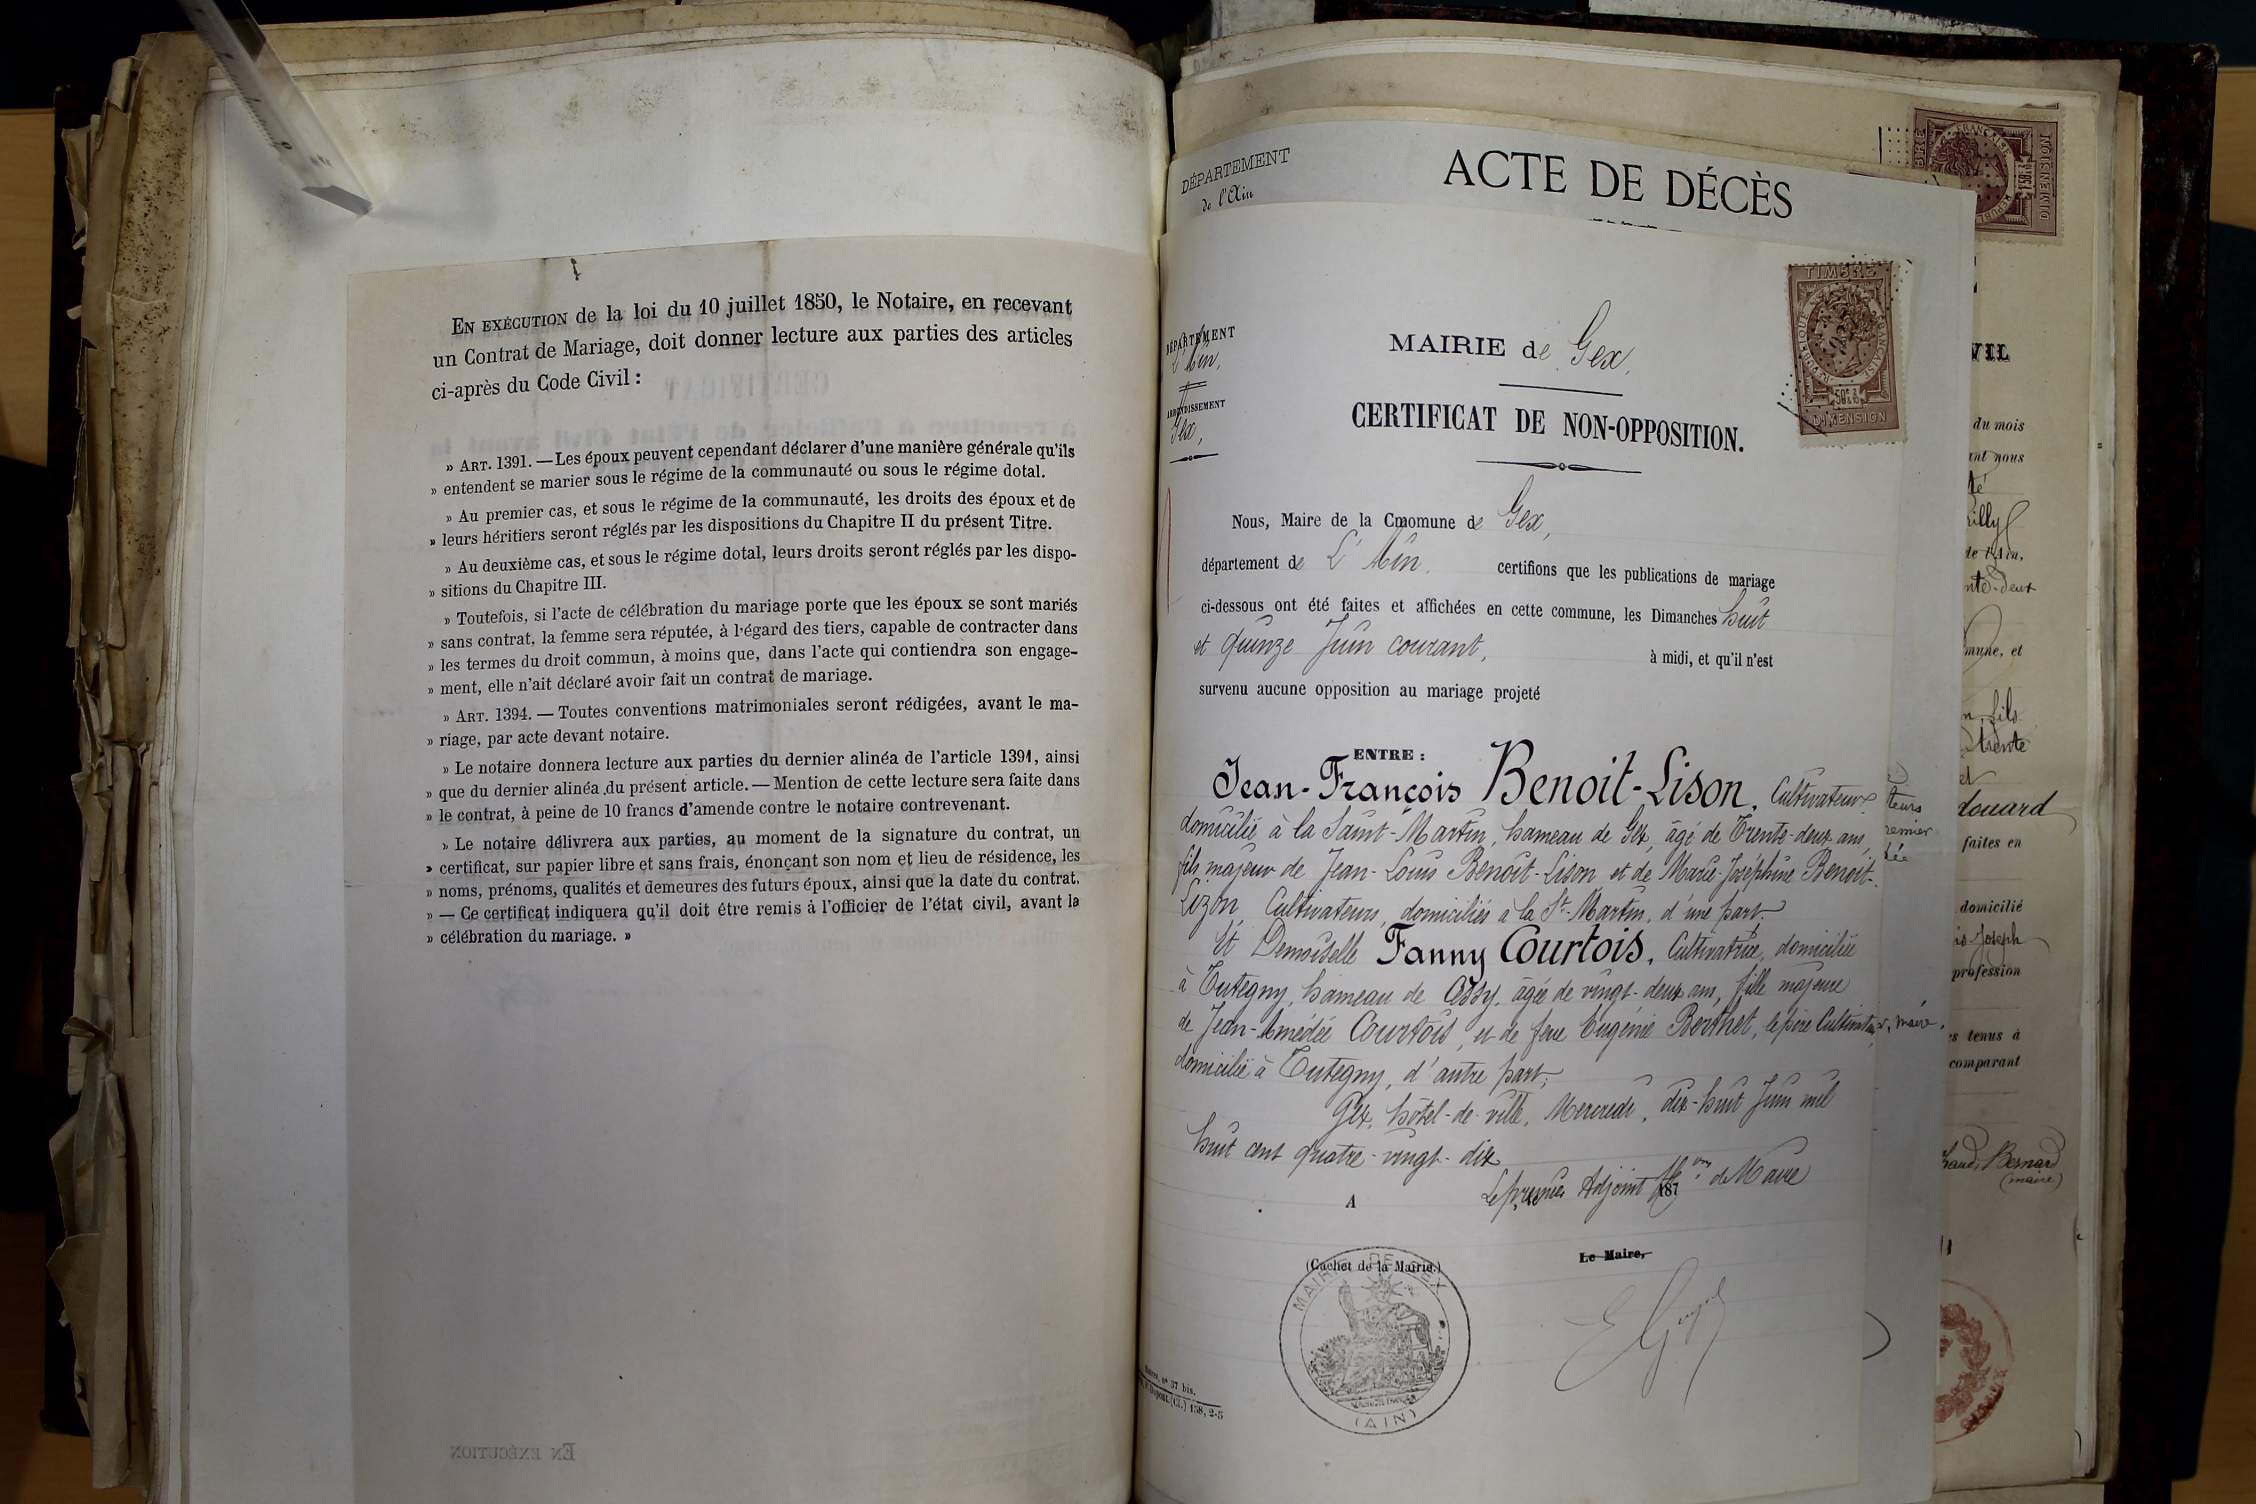 EN EXÉCUTION de la loi du 10 juillet 1850, le Notaire, en recevant
un Contrat de Mariage, doit donner lecture aux parties des articles
ci-après du Code Civil :
» ART. 1391. — Les époux peuvent cependant déclarer d'une manière générale qu'ils
» entendent se marier sous le régime de la communauté ou sous le régime dotal.
» Au premier cas, et sous le régime de la communauté, les droits des époux et de
» leurs héritiers seront réglés par les dispositions du Chapitre II du présent Titre.
» Au deuxième cas, et sous le régime dotal, leurs droits seront réglés par les dispo-
» sitions du Chapitre III.
» Toutefois, si l'acte de célébration du mariage porte que les époux se sont mariés
» sans contrat, la femme sera réputée, à l'égard des tiers, capable de contracter dans
» les termes du droit commun, à moins que, dans l'acte qui contiendra son engage-
» ment, elle n'ait déclaré avoir fait un contrat de mariage.
» ART. 1394. — Toutes conventions matrimoniales seront rédigées, avant le ma-
» riage, par acte devant notaire.
» Le notaire donnera lecture aux parties du dernier alinéa de l'article 1391, ainsi
» que du dernier alinéa du présent article. — Mention de cette lecture sera faite dans
» le contrat, à peine de 10 francs d'amende contre le notaire contrevenant.
» Le notaire délivrera aux parties, au moment de la signature du contrat, un
» certificat, sur papier libre et sans frais, énonçant son nom et lieu de résidence, les
» noms, prénoms, qualités et demeures des futurs époux, ainsi que la date du contrat.
» — Ce certificat indiquera qu'il doit être remis à l'officier de l'état civil, avant la
» célébration du mariage. »
EN EXÉCUTION
DÉPARTEMENT
de l'Ain
ACTE DE DÉCÈS
DÉPARTEMENT
l'Ain,
ARRONDISSEMENT
Gex,
MAIRIE de Gex,
TIMBRE
DIMENSION
CERTIFICAT DE NON-OPPOSITION.
Nous, Maire de la Cmomune de Gex,
département de L'Ain. certifions que les publications de mariage
ci-dessous ont été faites et affichées en cette commune, les Dimanches huit
et quinze Juin courant, à midi, et qu'il n'est
survenu aucune opposition au mariage projeté
ENTRE :
Jean-François Benoit-Lison, Cultivateur,
domicilié à la Saint-Martin, hameau de Gex, âgé de Trente-deux ans,
fils majeur de Jean-Louis Benoit-Lison et de Marie-Joséphine Benoit-
Lizon, Cultivateurs, domiciliés à la St-Martin, d'une part.
Et Demoiselle Fanny Courtois, Cultivatrice, domiciliée
à Tutegny, hameau de Cessy, âgée de vingt-deux ans, fille majeure
de Jean-Amédée Courtois, et de feue Eugénie Berthet, le père Cultivateur, maire,
domicilié à Tutegny, d'autre part.
Gex, hôtel-de-ville, Mercredi, dix-huit Juin mil
huit cent quatre-vingt-dix
A Le premier Adjoint 187 de Maire
(Cachet de la Mairie.) Le Maire,
MAIRIE DE GEX
(AIN)
n° 37 bis.
158, 2-5
DIMENSION
VIL
du mois
nous
rilly
de l'Ain,
nte-deux
mune, et
fils
trente
et
douard
faites en
domicilié
is-Joseph
profession
s tenus à
comparant
Bernard
(maire)
teurs
remier